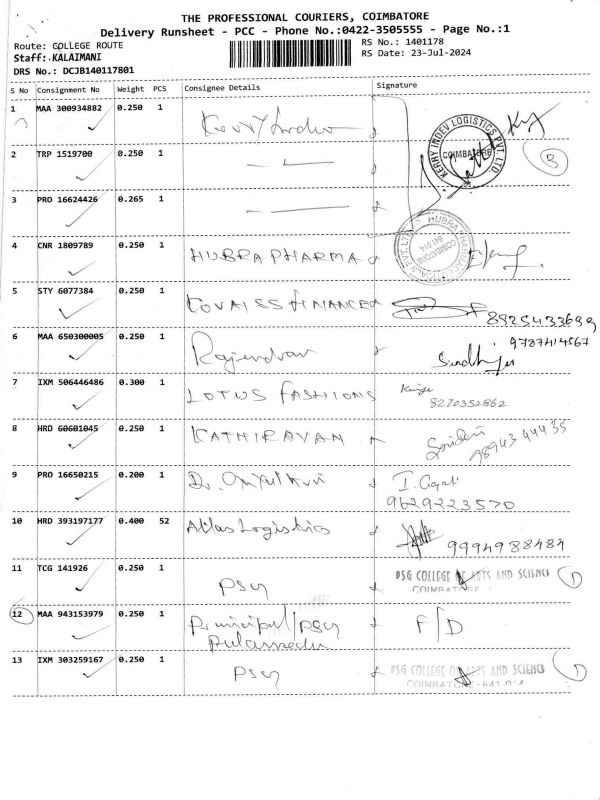 THE PROFESSIONAL COURIERS, COIMBATORE
Delivery Runsheet - PCC - Phone No.:0422-3505555 - Page No.:1
Route: COLLEGE ROUTE
RS No.: 1401178
Staff: KALAIMANI
RS Date: 23-Jul-2024
DRS No.: DCJB140117801
S No Consignment No Weight PCS Consignee Details Signature
1 MAA 300934882 0.250 1 Kerry Indev
KERRY INDEV LOGISTICS PVT. LTD. COIMBATORE
3
2 TRP 1519700 0.250 1
3 PRO 16624426 0.265 1
4 CNR 1809789 0.250 1 HUBRA PHARMA
COIMBATORE 641 014
5 STY 6077384 0.250 1 KOVAI SS FINANCE
8925433699
6 MAA 650300005 0.250 1 Rajendran
9787414567
7 IXM 506446486 0.300 1 LOTUS FASHIONS
8270352862
8 HRD 60601045 0.250 1 KATHIRAVAN
9894344435
9 PRO 16650215 0.200 1 Dr.
9629223570
10 HRD 393197177 0.400 52 Atlas Logistics
9994988484
11 TCG 141926 0.250 1 PSG
PSG COLLEGE OF ARTS AND SCIENCE
COIMBATORE
12 MAA 943153979 0.250 1 Principal/PSG F/D
Pulamedu
13 IXM 303259167 0.250 1 PSG
PSG COLLEGE OF ARTS AND SCIENCE
COIMBATORE - 641 014